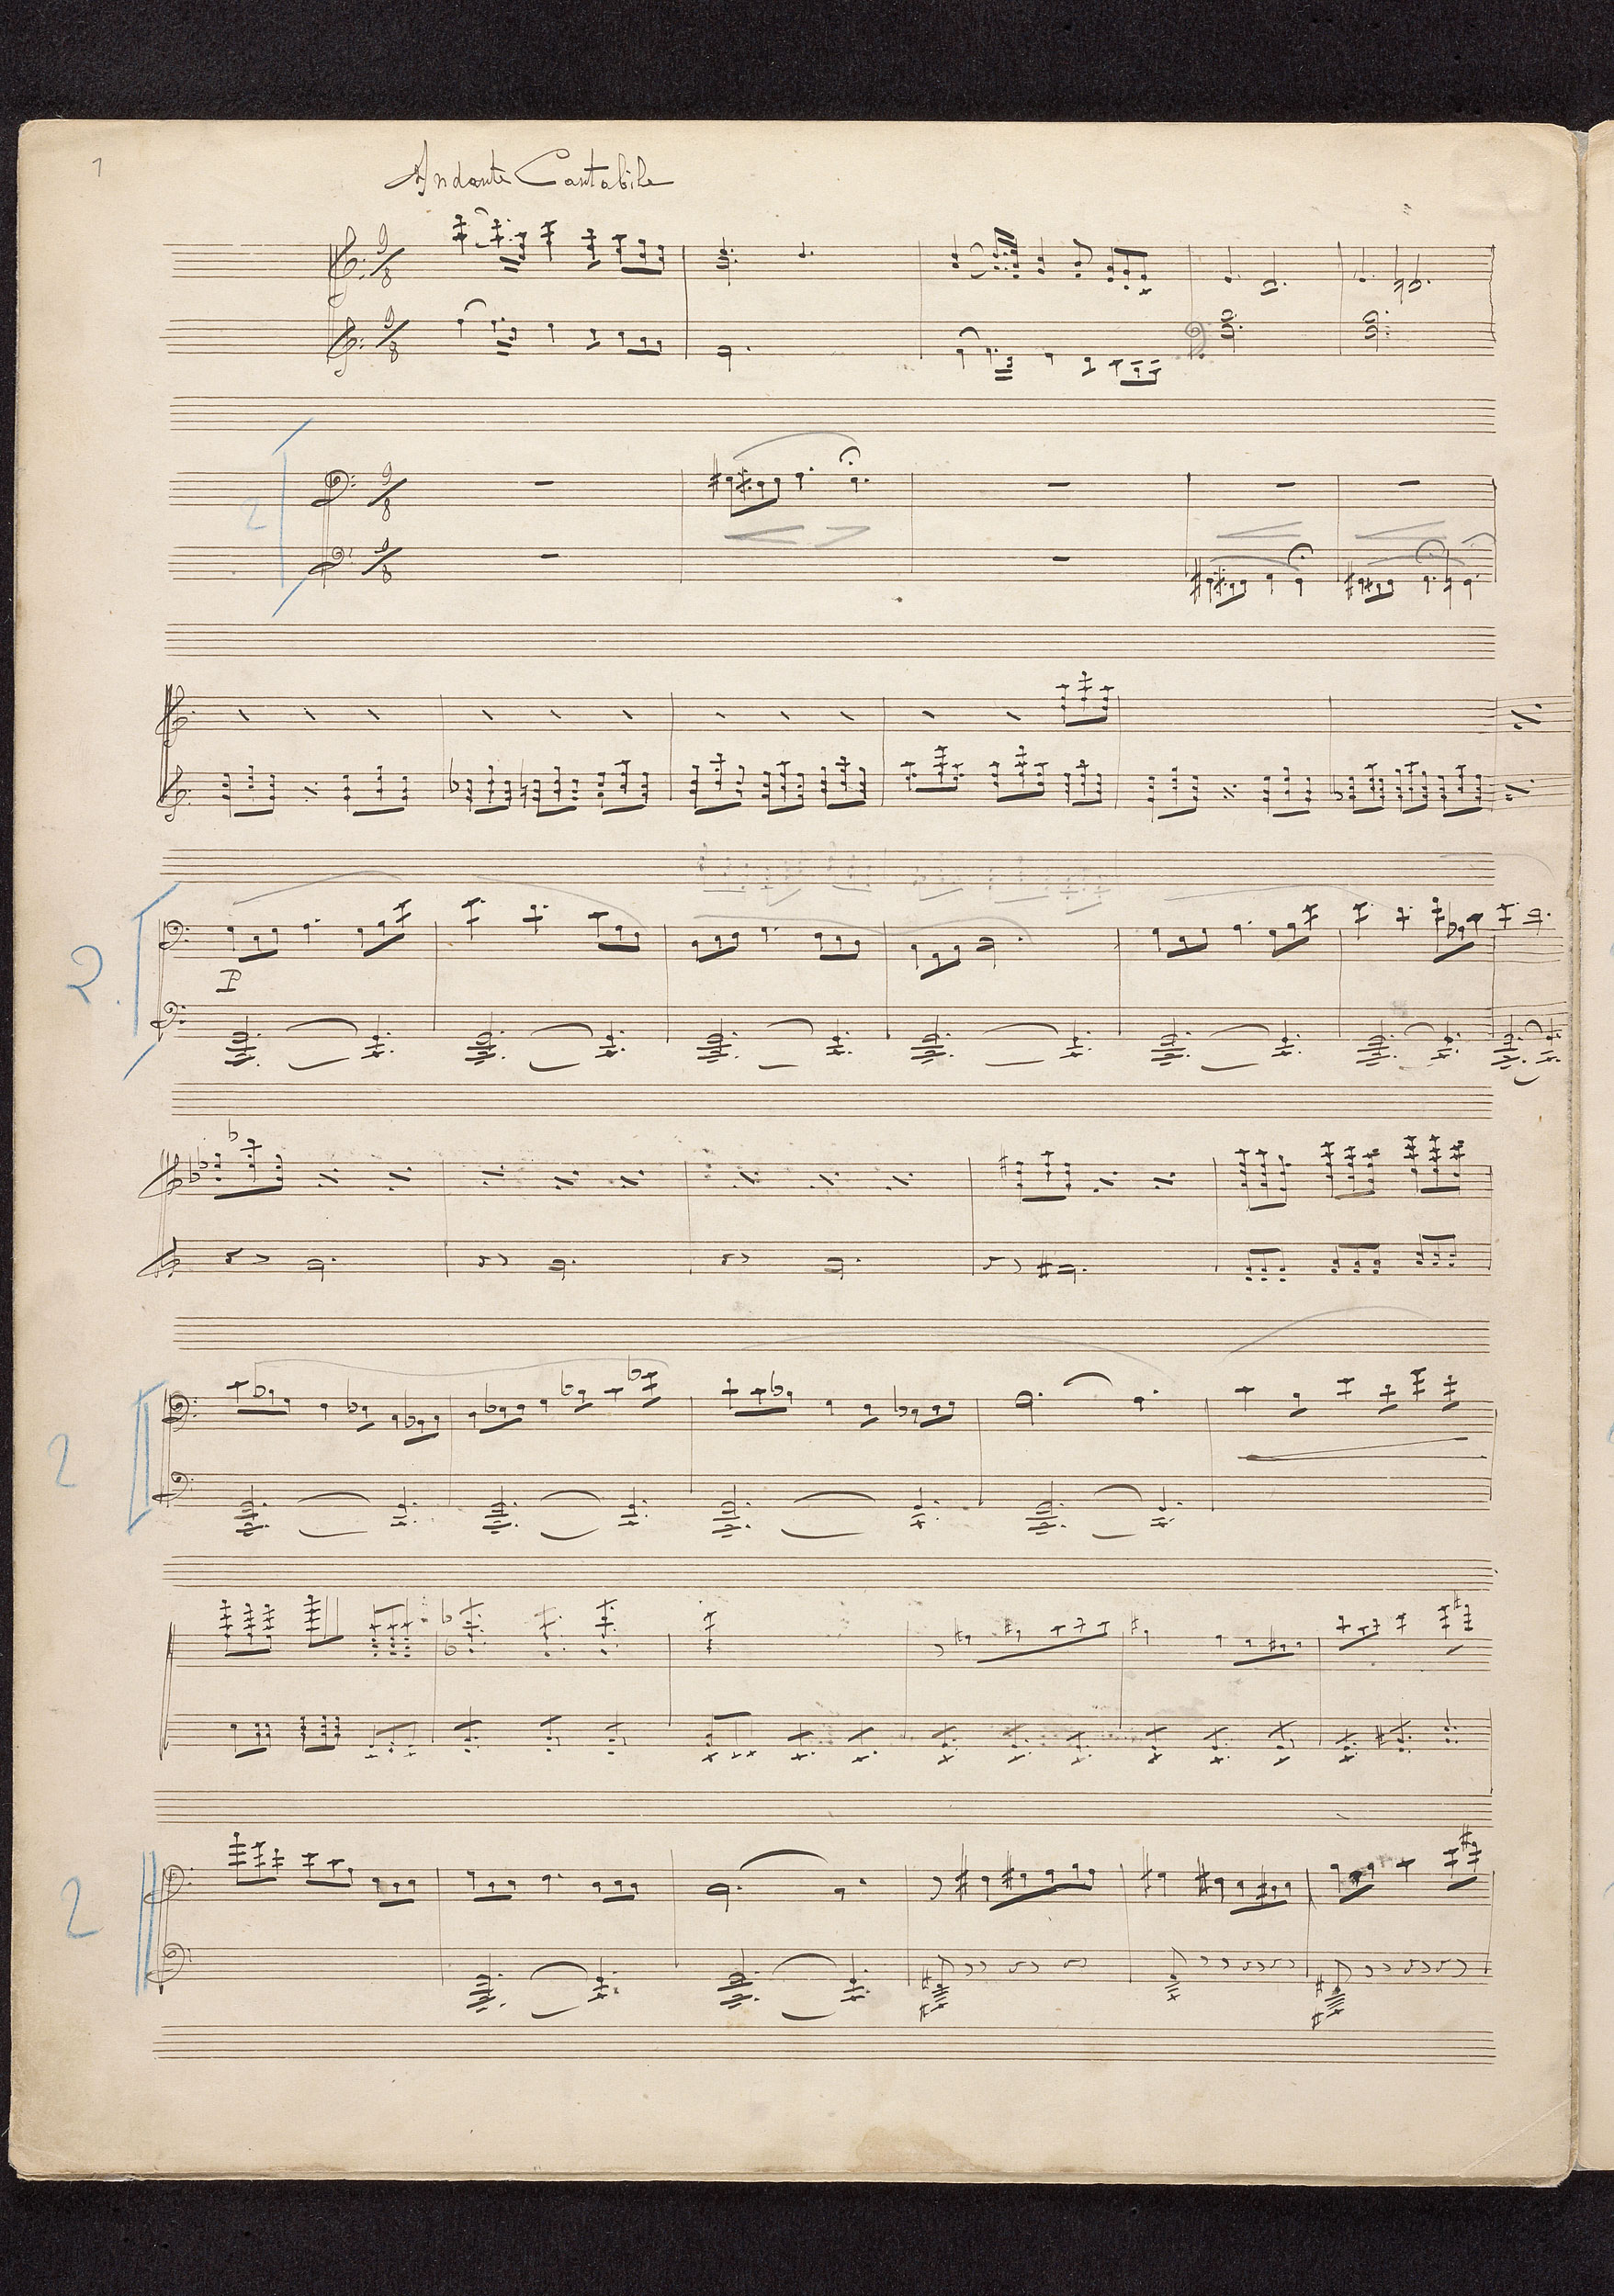 1
Andante Cantabile
9/8
9/8
2
9/8
9/8
2.
P
2
2